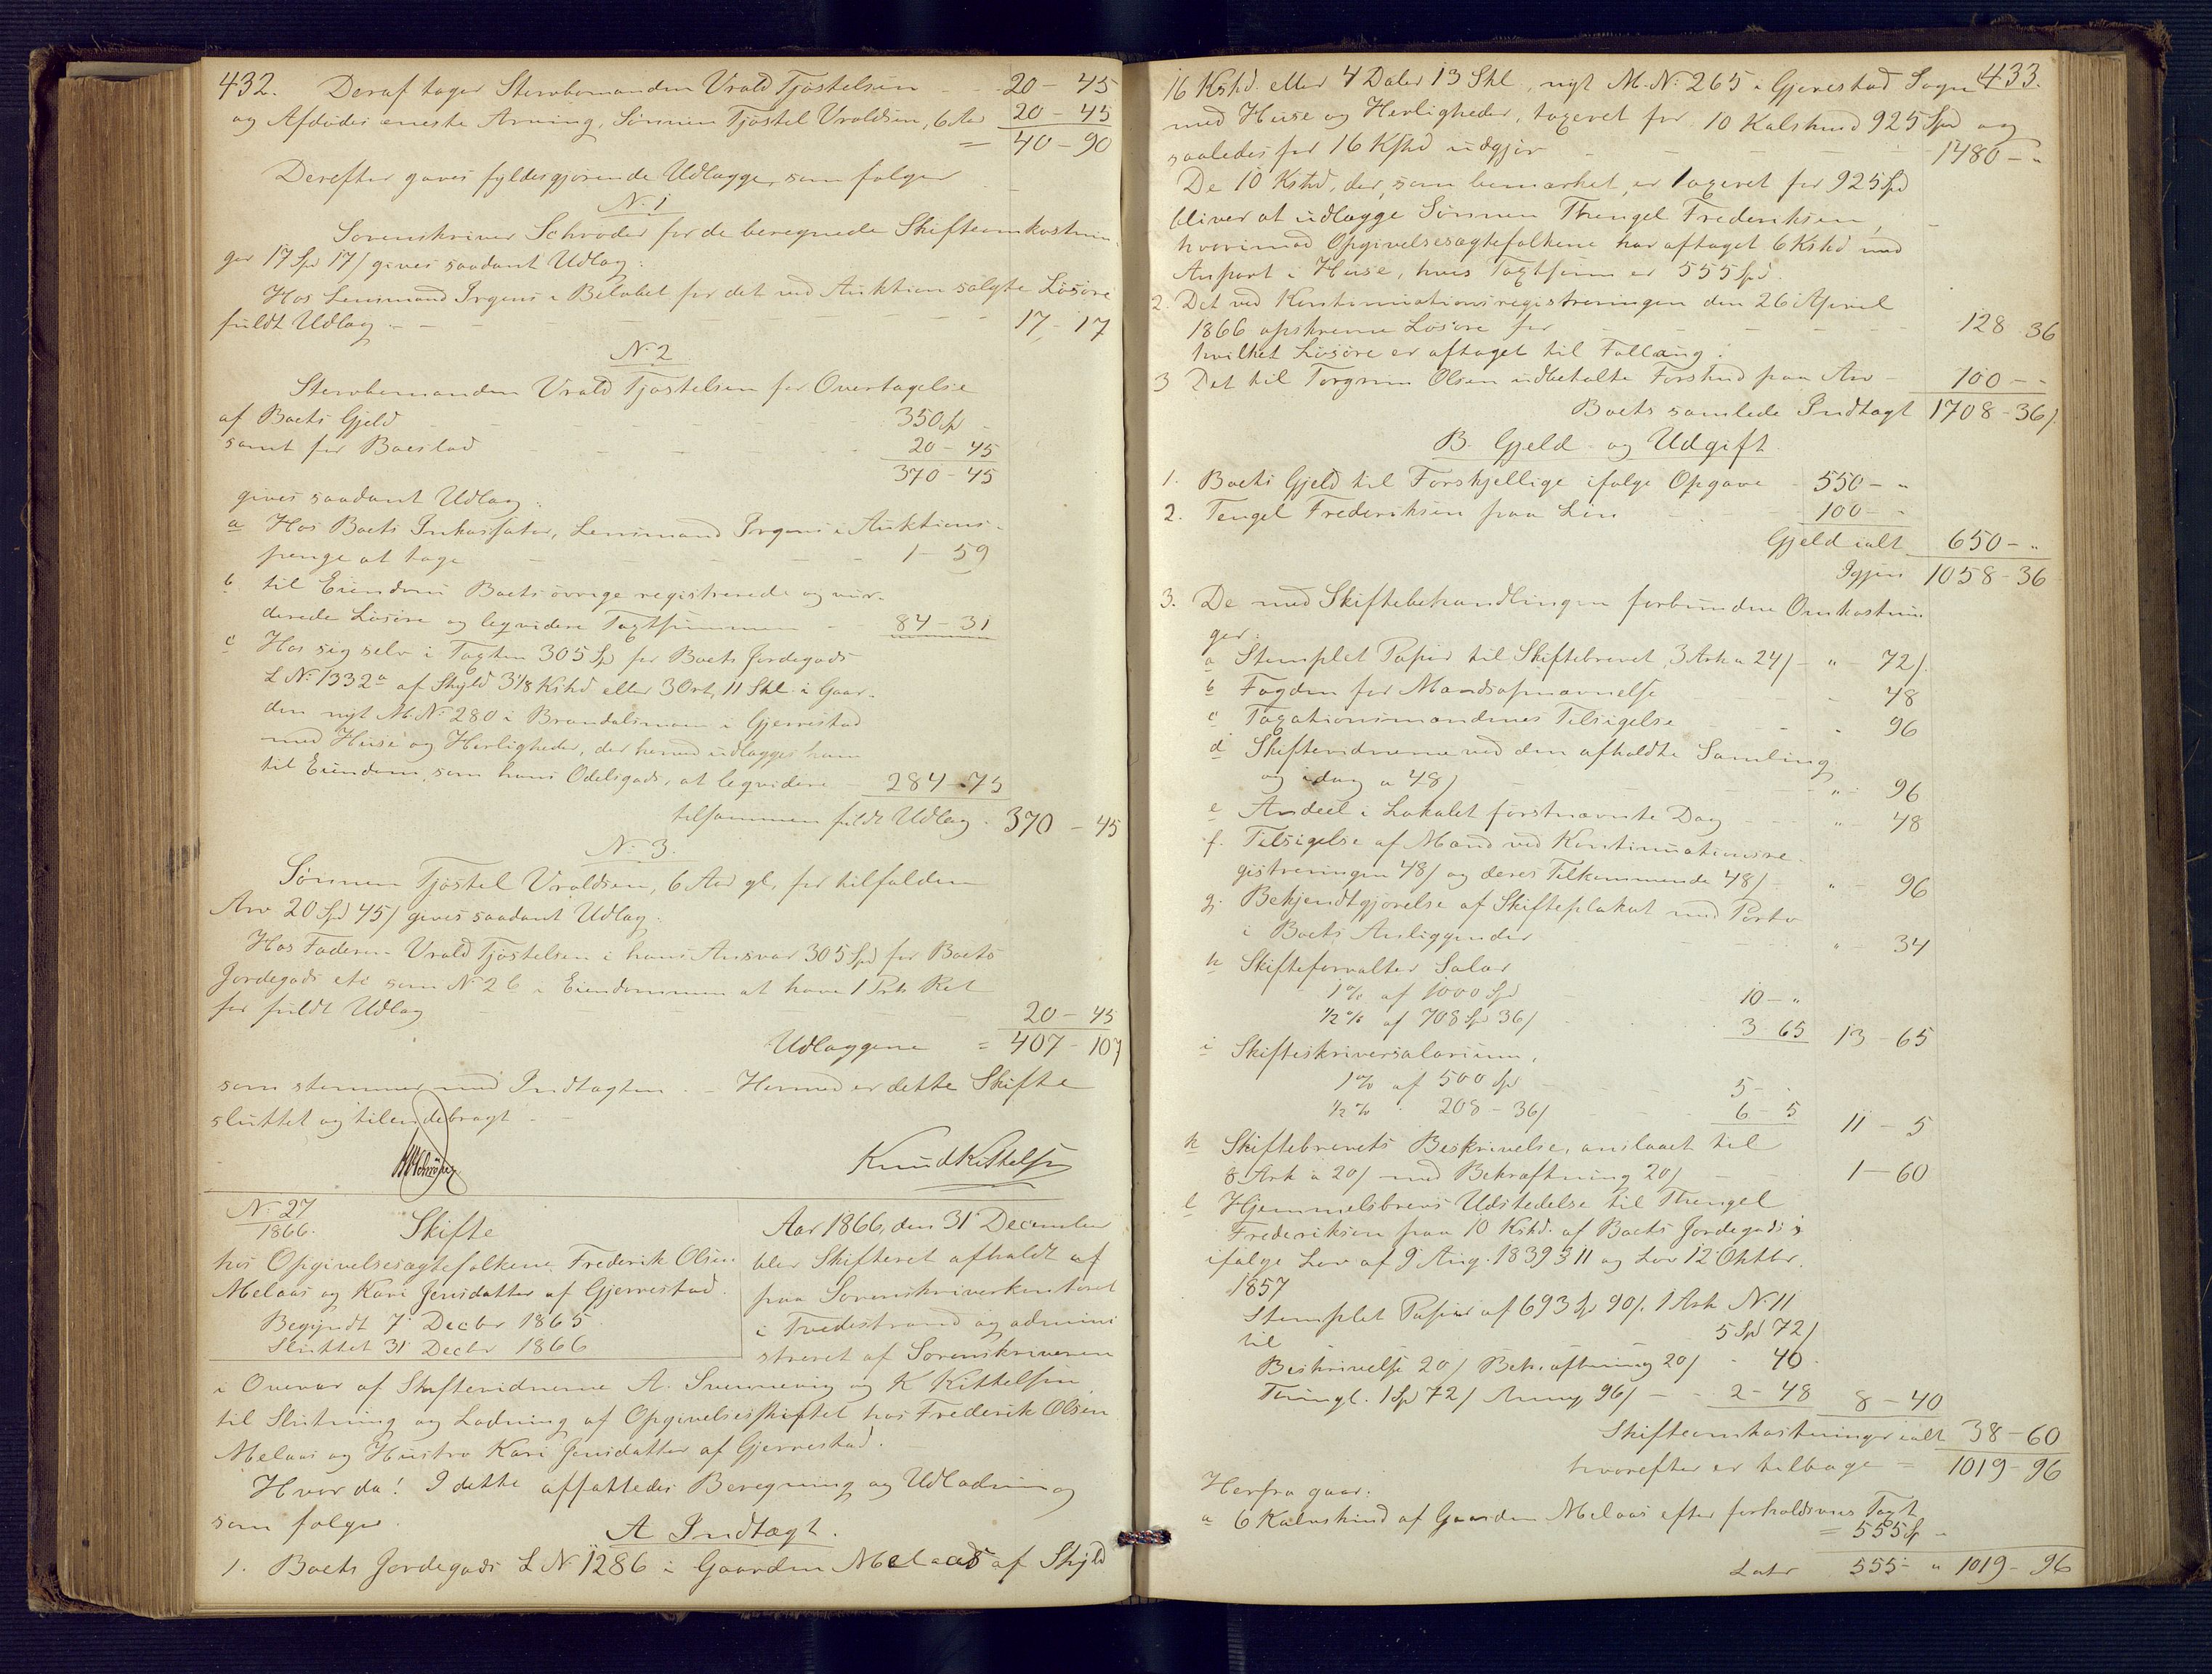 432.
Deraf tager Stervbomanden Vrald Tjøstelsen - - 20 - 45
og Afdødes eneste Arving, Sønnen Tjøstel Vraldsen, 6 Aar 20 - 45
= 40 - 90
Derefter gives fyldesgjørende Udlægge, som følger
N: 1
Sorenskriver Schrøder for de beregnede Skifteomkostnin
ger 17 Spd 17 / gives saadant Udlæg:
Hos Lensmand Irgens i Beløbet for det ved Auktion solgte Løsøre
fuldt Udlæg - - - 17 - 17
N: 2
Stervbomanden Vrald Tjøstelsen for Overtagelse
af Boets Gjeld - - - 350 Sp -
samt for Boeslod - - - 20 - 45
370 - 45
gives saadant Udlæg:
a Hos Boets Inkassator, Lensmand Irgens i Auktions-
penge at tage - - - 1 - 59
b. til Eiendom Boets øvrige registrerede og vur-
derede Løsøre og leqvidere Taxtsummen - - 84 - 31
c Hos sig selv i Taxten 305 Sp for Boets Jordegods
L N: 1332a af Skyld 3 1/8 Kskd eller 3 Ort, 11 Skl. i Gaar-
den nyt M.N: 280 i Brændalsmoen i Gjerrestad
med Huse og Herligheder, der herved udlægges ham
til Eiendom, som hans Odelsgods, at leqvidere - 284 - 75
tilsammen fuldt Udlæg - 370 - 45
N: 3.
Sønnen Tjøstel Vraldsen, 6 Aar gl, for tilfalden
Arv 20 Spd 45 / gives saadant Udlæg:
Hos Faderen Vrald Tjøstelsen i hans Ansvar 305 Spd for Boets
Jordegods etc som N 2 c i Eiendommen at have 1 Prts Ret
for fuldt Udlæg - - - 20 - 45
Udlæggene = 407 - 107
som stemmer med Indtægten. - Hermed er dette Skifte
sluttet og tilendebragt -
Schrøder
Knud Kittelsen
N: 27
1866.
Skifte
hos Opgivelsesægtefolkene Frederik Olsen
Melaas og Kari Jensdatter af Gjerrestad.
Begyndt 7 Decbr 1865
Sluttet 31 Decbr 1866
Aar 1866, den 31 December
blev Skifteret afholdt af
paa Sorenskriverkontoret
i Tvedestrand og admini
streret af Sorenskriveren
i Overvær af Skiftevidnerne A. Svennevig og K Kittelsen
til Slutning og Lodning af Opgivelsesskiftet hos Frederik Olsen
Melaas og Hustro Kari Jensdatter af Gjerrestad.
Hvor da! I dette affattedes Beregning og Udlodning
som følger.
A Indtægt.
1. Boets Jordegods L N: 1286 i Gaarden Melaas af Skyld
433.
16 Kskd. eller 4 Daler 13 Skl, nyt M.N: 265 i Gjerestad Sogn
med Huse og Herligheder, taxeret for 10 Kalskind 925 Spd og
saaledes for 16 Kskd udgjør - - - 1480 - "
De 10 Kskd, der, som bemærket, er taxeret for 925 Spd
bliver at udlægge Sønnen Thengel Frederiksen,
hvorimod Opgivelsesægtefolkene har aftaget 6 Kskd med
Anpart i Huse, hvis Taxtsum er 555 Spd.
2. Det ved Kontinuationsregistreringen den 26 April
1866 opskrevne Løsøre for - - - 128 - 36
hvilket Løsøre er aftaget til Follaug.
3 Det til Torgrim Olsen udbetalte Forskud paa Arv - 100 - -
Boets samlede Indtægt 1708 - 36 /
B. Gjeld og Udgift.
1. Boets Gjeld til Forskjellige ifølge Opgave - 550 - "
2. Tengel Frederiksen paa Løn - - - 100 - "
Gjeld ialt - 650 - "
Igjen 1058 - 36
3. De med Skiftebehandlingen forbundne Omkostnin
ger:
a Stemplet Papir til Skiftebrevet, 3 Ark a 24 / - " - 72 /
b Fogden for Mandsopnævnelse - - 48
c Taxationsmændenes Tilsigelse - - 96
d Skiftevidnerne ved den afholdte Samling
og idag a 48 / - - - " - 96
e Andeel i Lokalet førstnævnte Dag - - " - 48
f. Tilsigelse af Mænd ved Kontinuationsre-
gistreringen 48 / og deres Tilkommende 48 / - " - 96
g. Bekjendtgjørelse af Skifteplakat med Porto
i Boets Anliggender - - - " - 34
h Skifteforvalter Salar
1 % af 1000 Spd - - 10 - "
1/2 % af 708 Sp 36 / - - 3 65 13 - 65
i Skifteskriversalarium,
1 % af 500 Spd - - 5 -
1/2 % " 208 - 36 / - - 6 - 5 11 - 5
k Skiftebrevets Beskrivelse, anslaaet til
8 Ark a 20 / med Bekræftning 20 / - - 1 - 60
l Hjemmelsbrevs Udstedelse til Thengel
Frederiksen paa 10 Kskd. af Boets Jordegods
ifølge Lov af 9 Aug. 1839 § 11 og Lov 12 Oktbr.
1857
Stemplet Papir af 693 Sp 90 /. 1 Ark N: 11
til - - - 5 Spd 72 /
Beskrivelse 20 / Bekræftning 20 / - 40
Thingl. 1 Sp 72 / 96 / - - 2 - 48 8 - 40
Skifteomkostninger ialt 38 - 60
hvorefter er tilbage = 1019 - 96
Herfra gaar:
a 6 Kalvskind af Gaarden Melaas efter forholdsvis Taxt
= 555 Sp -
Later 555 - " 1019 - 96